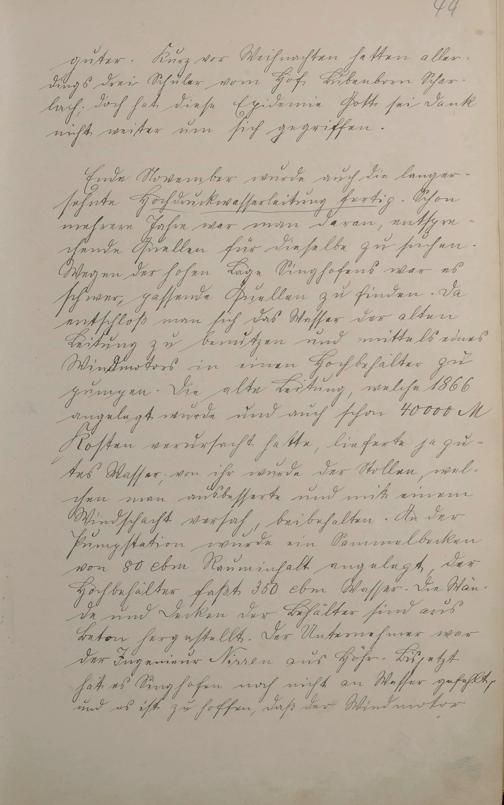 44
guter. Kurz vor Weihnachten hatten aller-
dings drei Schüler vom Hof Lübenborn Schar-
lach; doch hat diese Epidemie Gott sei Dank
nicht weiter um sich gegriffen.
Ende November wurde auch die langer-
sehnte Hochdruckwasserleitung fertig. Schon
mehrere Jahre war man daran, entspre-
chende Quellen für dieselbe zu suchen.
Wegen der hohen Lage Singhofens war es
schwer, passende Quellen zu finden. Da
entschloß man sich das Wasser der alten
Leitung zu benutzen und mittels eines
Windmotors in einen Hochbehälter zu
pumpen. Die alte Leitung, welche 1866
angelegt wurde und auch schon 40000 M
Kosten verursacht hatte, lieferte ja gu-
tes Wasser; von ihr wurde der Stollen, wel-
chen man ausbesserte und mit einem
Windschacht versah, beibehalten. An der
Pumpstation wurde ein Sammelbecken
von 80 cbm Rauminhalt angelegt, der
Hochbehälter faßt 350 cbm Wasser. Die Wän-
de und Decken der Behälter sind aus
Beton hergestellt. Der Unternehmer war
der Ingenieur aus Höhr. Bis jetzt
hat es Singhofen noch nicht an Wasser gefehlt,
und es ist zu hoffen, daß der Windmotor